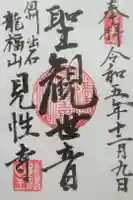 奉拝 令和五年十二月九日
聖観世音
但州出石
龍福山 見性寺